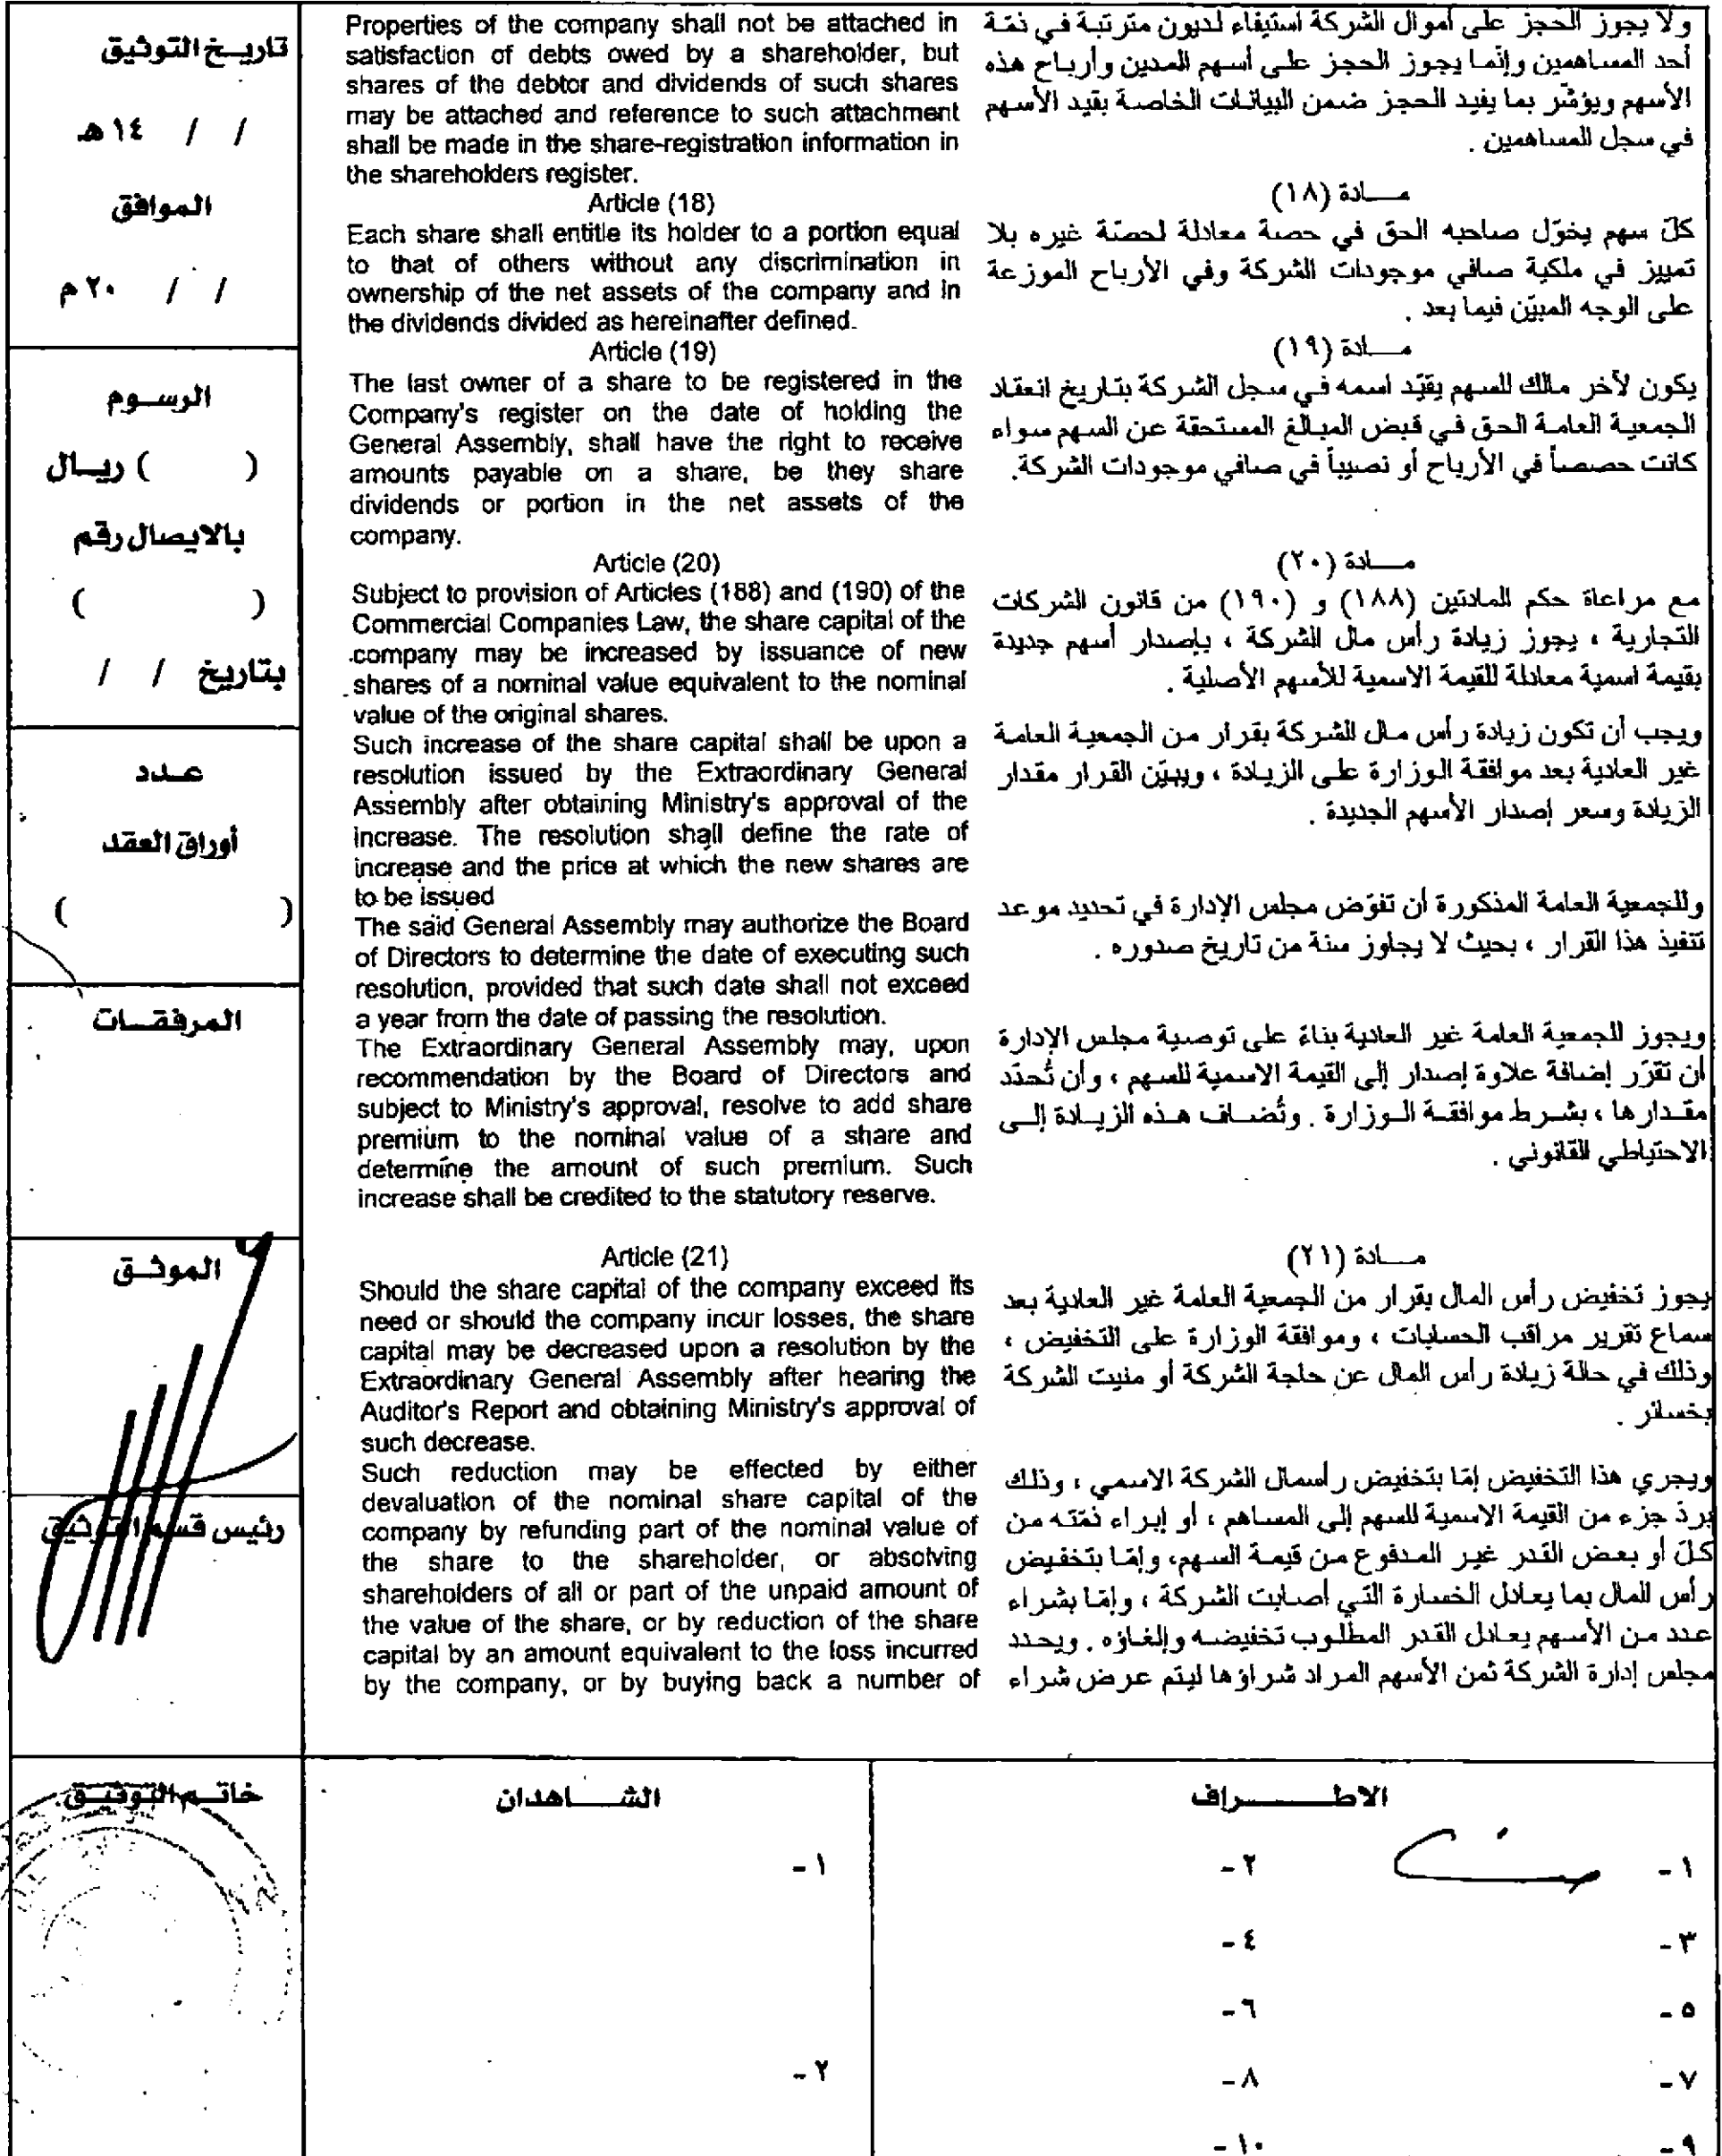 تاريخ التوثيق
/ / ١٤ هـ
الموافق
/ / ٢٠ م
الرسوم
( ) ريال
بالايصال رقم
( )
بتاريخ / /
عدد
أوراق العقد
( )
المرفقات
الموثق
رئيس قسم التوثيق
Properties of the company shall not be attached in
satisfaction of debts owed by a shareholder, but
shares of the debtor and dividends of such shares
may be attached and reference to such attachment
shall be made in the share-registration information in
the shareholders register.
Article (18)
Each share shall entitle its holder to a portion equal
to that of others without any discrimination in
ownership of the net assets of the company and in
the dividends divided as hereinafter defined.
Article (19)
The last owner of a share to be registered in the
Company's register on the date of holding the
General Assembly, shall have the right to receive
amounts payable on a share, be they share
dividends or portion in the net assets of the
company.
Article (20)
Subject to provision of Articles (188) and (190) of the
Commercial Companies Law, the share capital of the
company may be increased by issuance of new
shares of a nominal value equivalent to the nominal
value of the original shares.
Such increase of the share capital shall be upon a
resolution issued by the Extraordinary General
Assembly after obtaining Ministry's approval of the
increase. The resolution shall define the rate of
increase and the price at which the new shares are
to be issued
The said General Assembly may authorize the Board
of Directors to determine the date of executing such
resolution, provided that such date shall not exceed
a year from the date of passing the resolution.
The Extraordinary General Assembly may, upon
recommendation by the Board of Directors and
subject to Ministry's approval, resolve to add share
premium to the nominal value of a share and
determine the amount of such premium. Such
increase shall be credited to the statutory reserve.
Article (21)
Should the share capital of the company exceed its
need or should the company incur losses, the share
capital may be decreased upon a resolution by the
Extraordinary General Assembly after hearing the
Auditor's Report and obtaining Ministry's approval of
such decrease.
Such reduction may be effected by either
devaluation of the nominal share capital of the
company by refunding part of the nominal value of
the share to the shareholder, or absolving
shareholders of all or part of the unpaid amount of
the value of the share, or by reduction of the share
capital by an amount equivalent to the loss incurred
by the company, or by buying back a number of
ولا يجوز الحجز على أموال الشركة استيفاء لديون مترتبة في ذمّة
أحد المساهمين وإنّما يجوز الحجز على أسهم المدين وأرباح هذه
الأسهم ويؤشّر بما يفيد الحجز ضمن البيانات الخاصة بقيد الأسهم
في سجل المساهمين .
مـــادة (١٨)
كلّ سهم يخوّل صاحبه الحق في حصة معادلة لحصّة غيره بلا
تمييز في ملكية صافي موجودات الشركة وفي الأرباح الموزعة
على الوجه المبيّن فيما بعد .
مـــادة (١٩)
يكون لآخر مالك للسهم يقيّد اسمه في سجل الشركة بتاريخ انعقاد
الجمعية العامة الحق في قبض المبالغ المستحقة عن السهم سواء
كانت حصصاً في الأرباح أو نصيباً في صافي موجودات الشركة.
مـــادة (٢٠)
مع مراعاة حكم المادتين (١٨٨) و (١٩٠) من قانون الشركات
التجارية ، يجوز زيادة رأس مال الشركة ، بإصدار أسهم جديدة
بقيمة اسمية معادلة للقيمة الاسمية للأسهم الأصلية .
ويجب أن تكون زيادة رأس مال الشركة بقرار من الجمعية العامة
غير العادية بعد موافقة الوزارة على الزيادة ، ويبيّن القرار مقدار
الزيادة وسعر إصدار الأسهم الجديدة .
وللجمعية العامة المذكورة أن تفوّض مجلس الإدارة في تحديد موعد
تنفيذ هذا القرار ، بحيث لا يجاوز سنة من تاريخ صدوره .
ويجوز للجمعية العامة غير العادية بناءً على توصية مجلس الإدارة
أن تقرّر إضافة علاوة إصدار إلى القيمة الاسمية للسهم ، وأن تُحدّد
مقدارها ، بشرط موافقة الوزارة . وتُضاف هذه الزيادة إلى
الاحتياطي القانوني .
مـــادة (٢١)
يجوز تخفيض رأس المال بقرار من الجمعية العامة غير العادية بعد
سماع تقرير مراقب الحسابات ، وموافقة الوزارة على التخفيض ،
وذلك في حالة زيادة رأس المال عن حاجة الشركة أو منيت الشركة
بخسائر .
ويجري هذا التخفيض إمّا بتخفيض رأسمال الشركة الاسمي ، وذلك
بردّ جزء من القيمة الاسمية للسهم إلى المساهم ، أو إبراء ذمّته من
كلّ أو بعض القدر غير المدفوع من قيمة السهم، وإمّا بتخفيض
رأس المال بما يعادل الخسارة التي أصابت الشركة ، وإمّا بشراء
عدد من الأسهم يعادل القدر المطلوب تخفيضه وإلغاؤه . ويحدد
مجلس إدارة الشركة ثمن الأسهم المراد شراؤها ليتم عرض شراء
خاتم التوثيق
الشـــاهدان
١ -
٢ -
الاطـــــراف
١ -
٢ -
٣ -
٤ -
٥ -
٦ -
٧ -
٨ -
٩ -
١٠ -